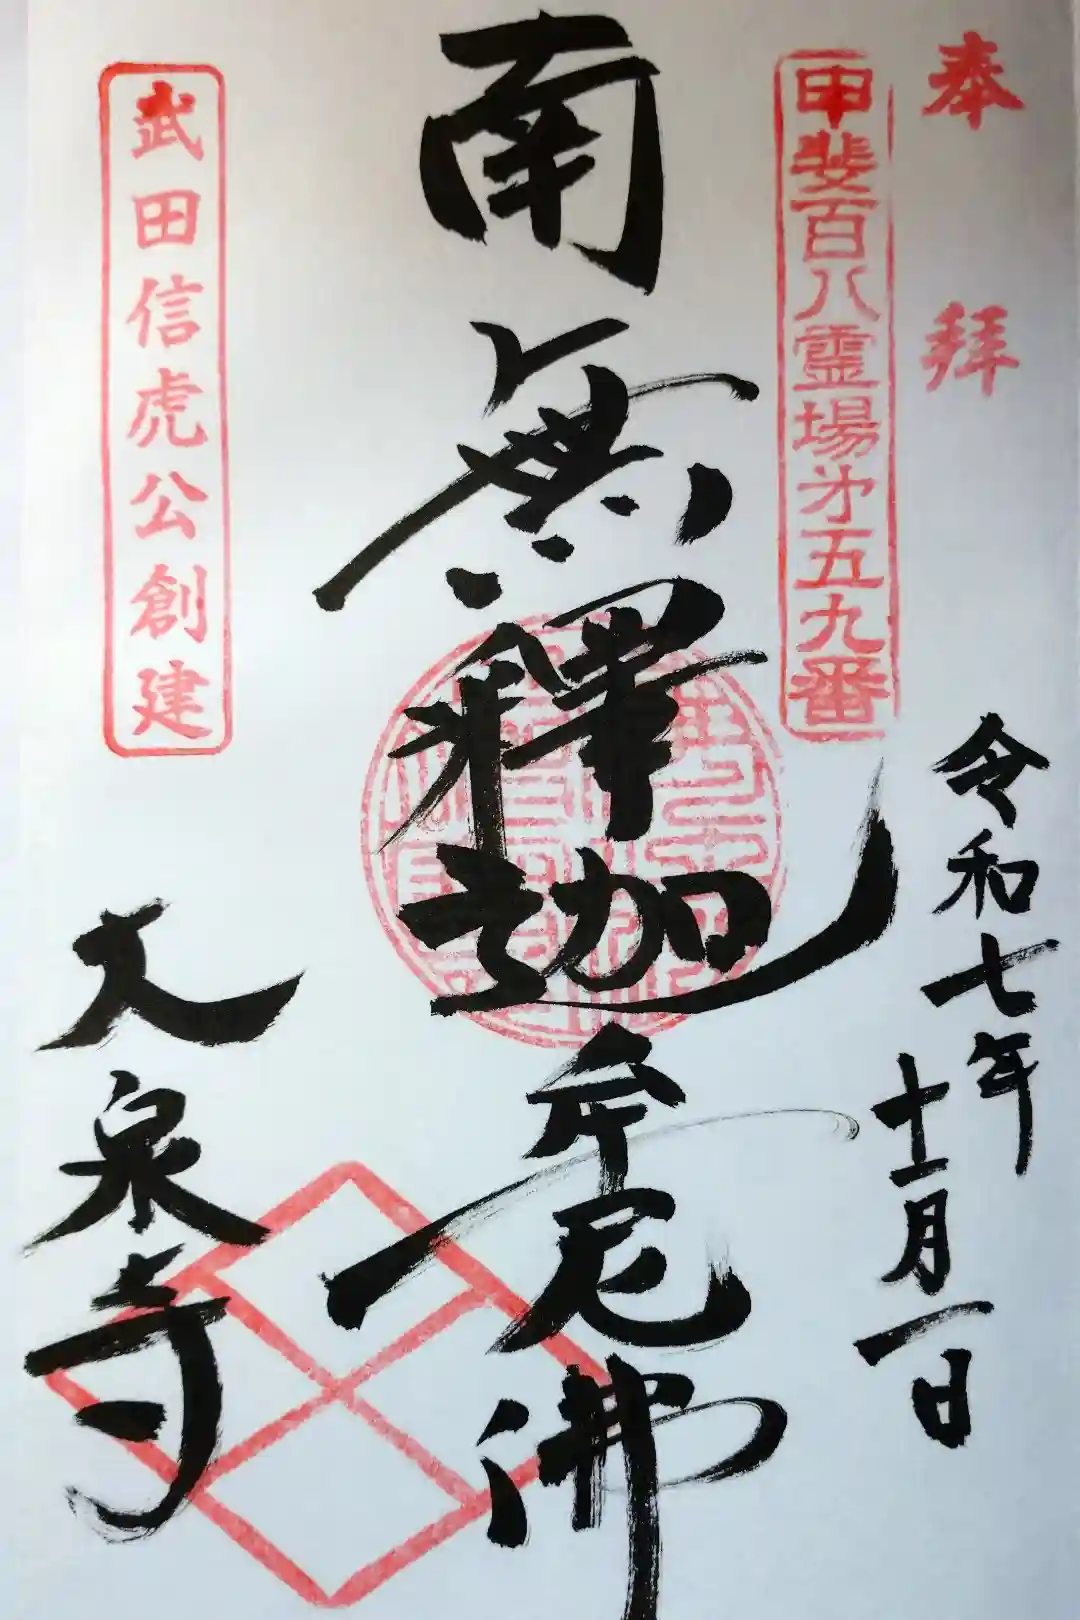 奉拝
令和七年
十一月一日
甲斐百八霊場㐧五九番
南無釋迦牟尼佛
武田信虎公創建
大泉寺